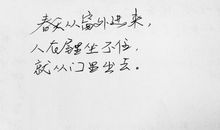 春天从窗外进来，
人在屋里坐不住，
就从门里出去。